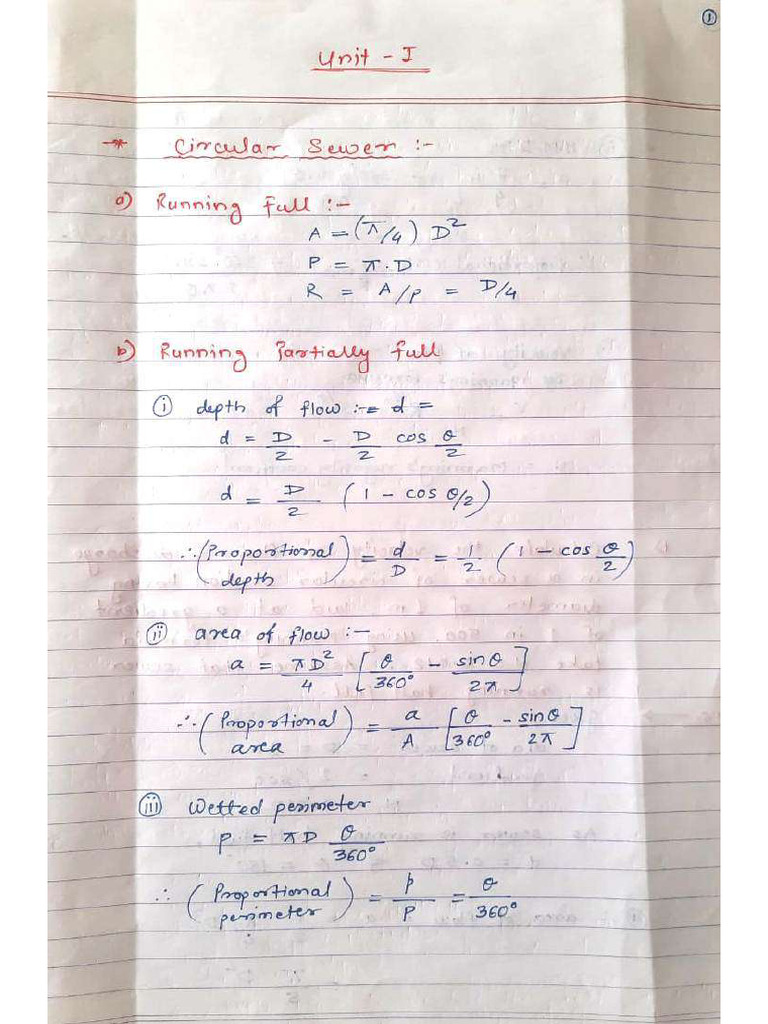 1
Unit - I
* Circular Sewer :-
a) Running full :-
A = (π/4) D²
P = π.D
R = A/p = D/4
b) Running Partially full
(i) depth of flow :-= d =
d = D/2 - D/2 cos θ/2
d = D/2 (1 - cos θ/2)
∴ (Proportional depth) = d/D = 1/2 (1 - cos θ/2)
(ii) area of flow :-
a = πD²/4 [θ/360° - sinθ/2π]
∴ (Proportional area) = a/A [θ/360° - sinθ/2π]
(iii) Wetted perimeter
p = πD θ/360°
∴ (Proportional perimeter) = p/P = θ/360°